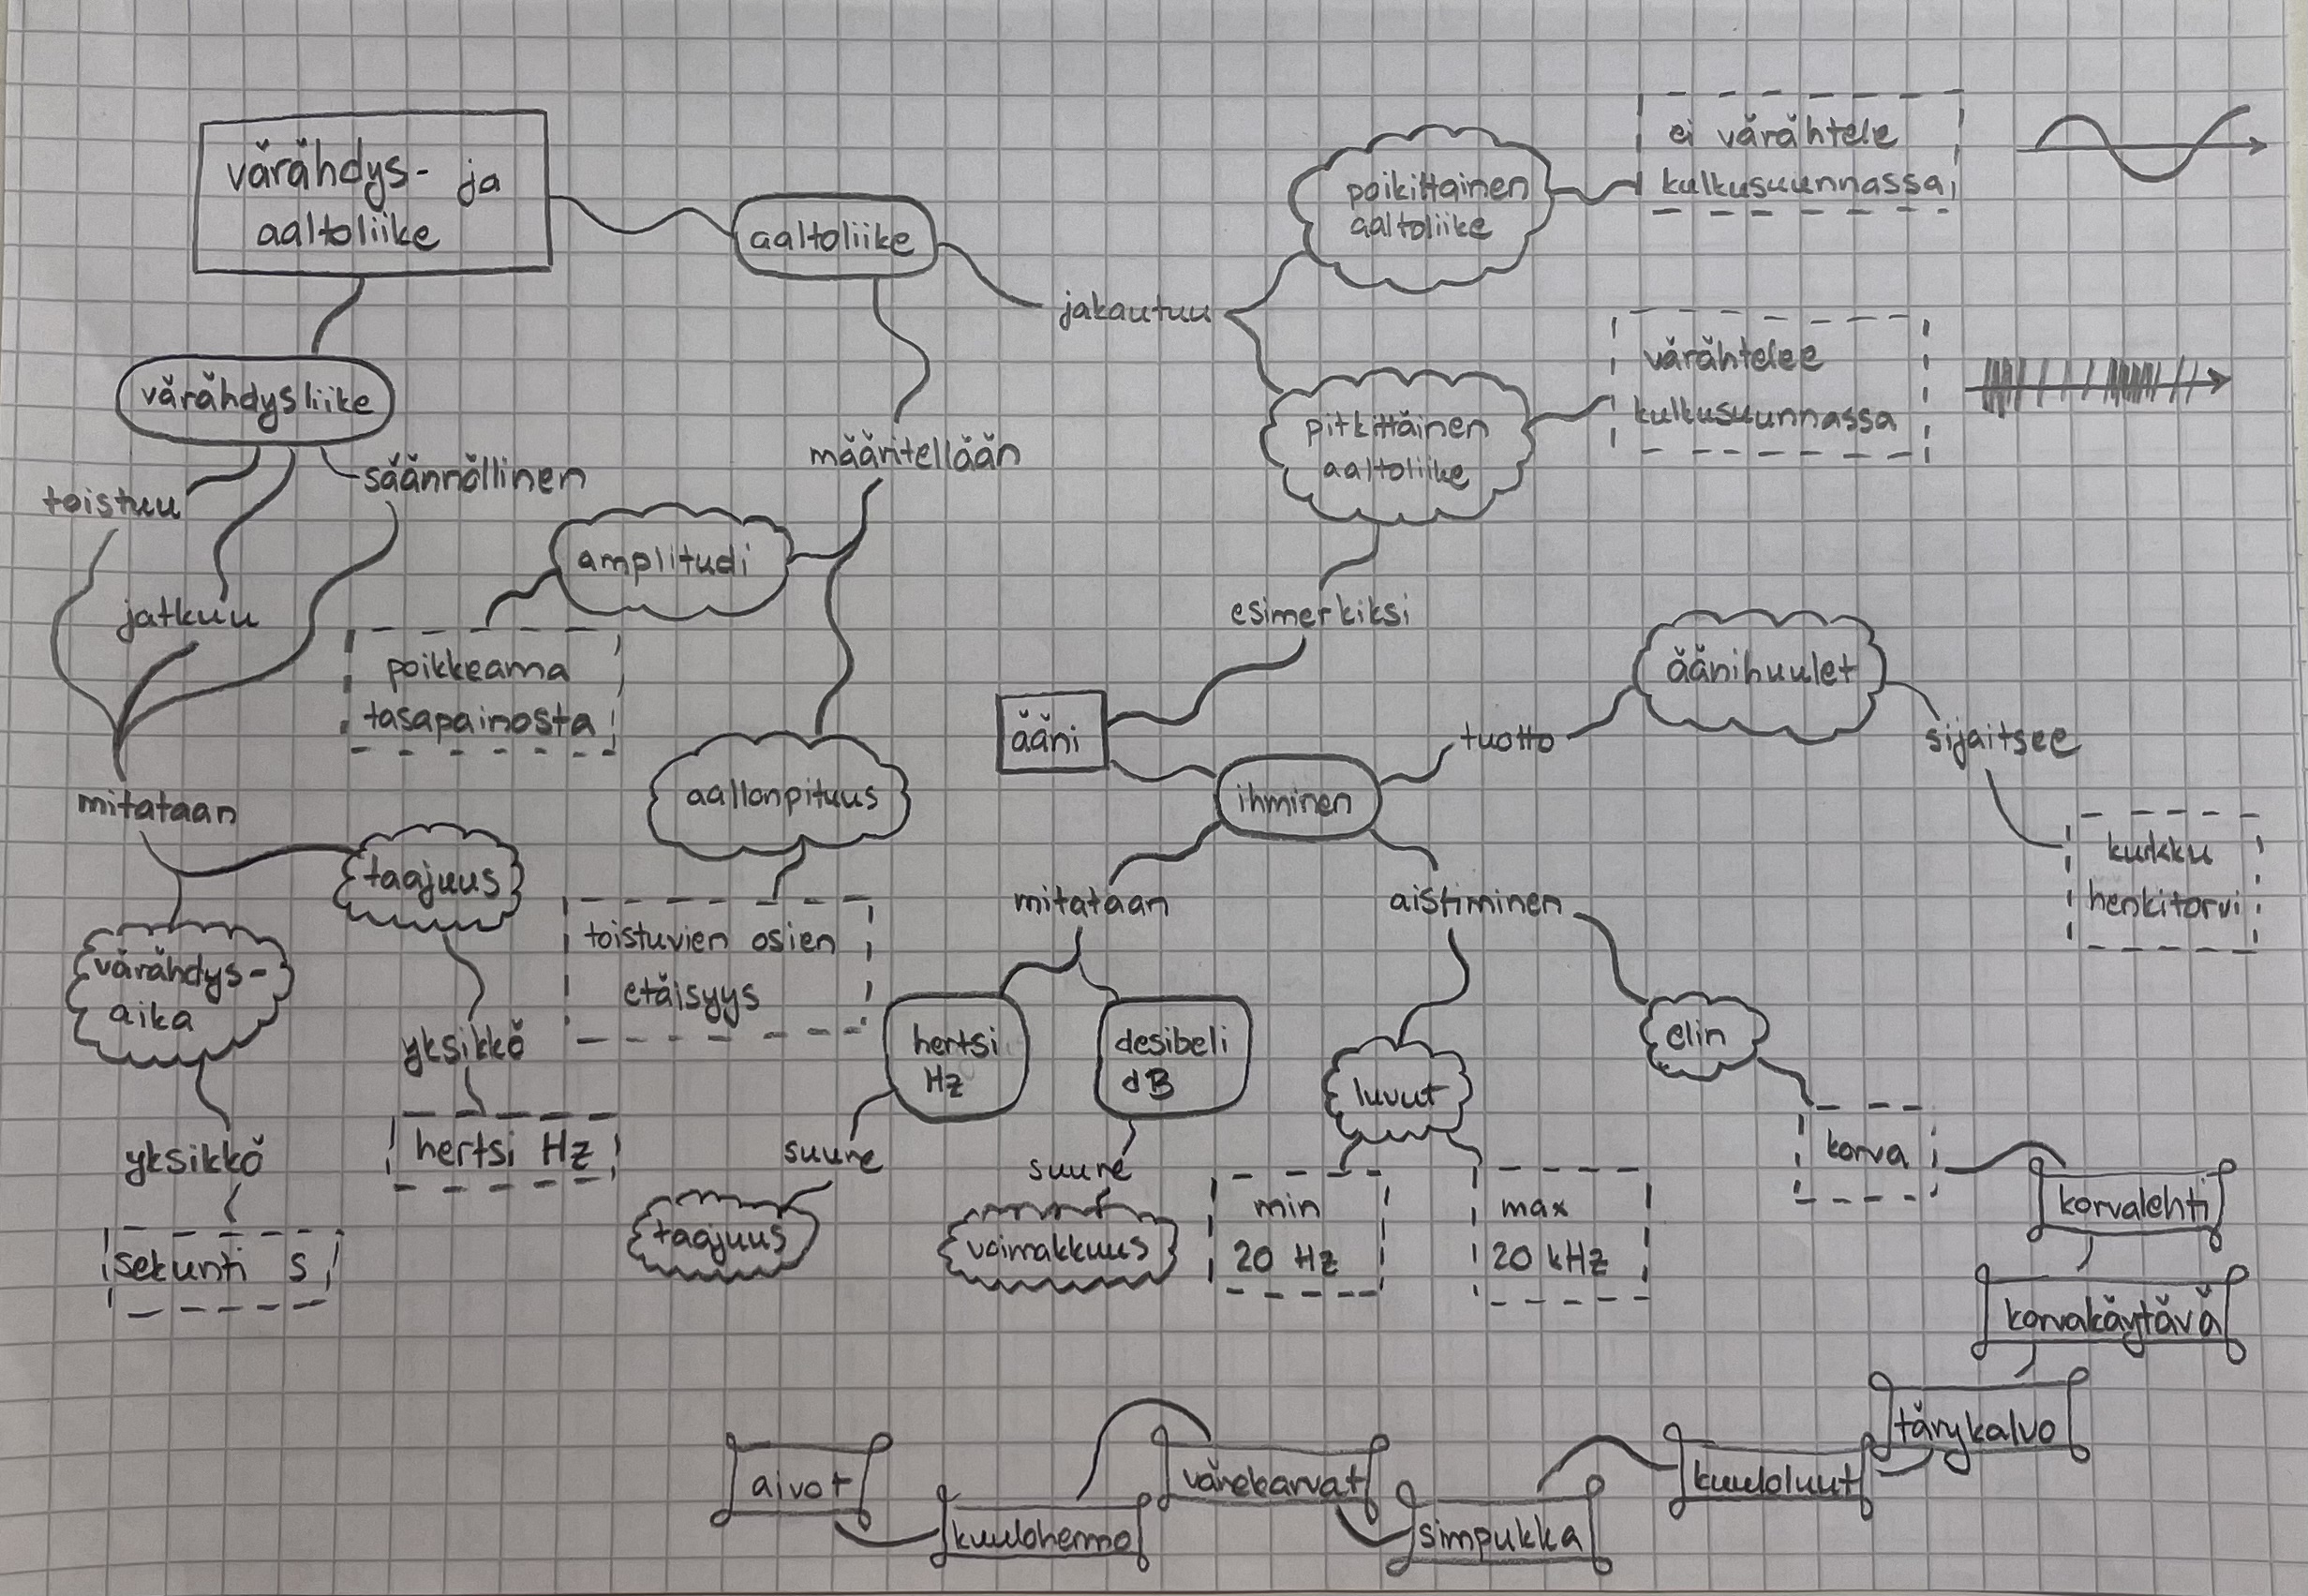 värähdys- ja
aaltoliike
aaltoliike
jakautuu
poikittainen
aaltoliike
ei värähtele
kulkusuunnassa
pitkittäinen
aaltoliike
värähtelee
kulkusuunnassa
värähdysliike
toistuu
säännöllinen
jatkuu
mitataan
taajuus
yksikkö
hertsi Hz
värähdys-
aika
yksikkö
sekunti s
määritellään
amplitudi
poikkeama
tasapainosta
aallonpituus
toistuvien osien
etäisyys
esimerkiksi
ääni
ihminen
tuotto
äänihuulet
sijaitsee
kurkku
henkitorvi
mitataan
hertsi
Hz
suure
taajuus
desibeli
dB
suure
voimakkuus
aistiminen
luvut
min
20 Hz
max
20 kHz
elin
korva
korvalehti
korvakäytävä
tärykalvo
kuuloluut
simpukka
värekarvat
kuulohermo
aivot